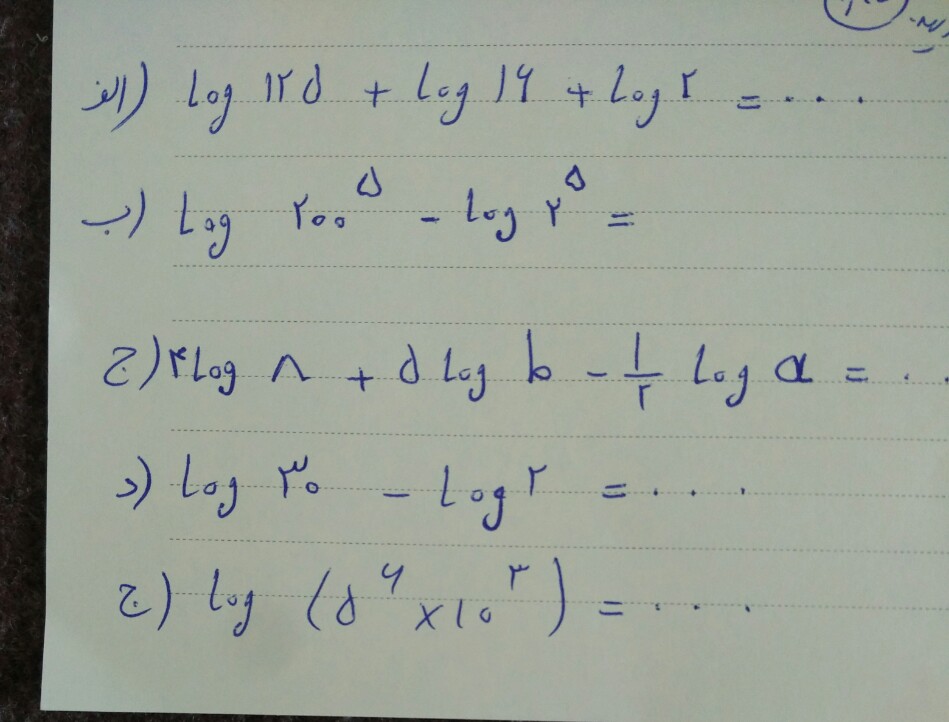 الف) log ۱۲۵ + log ۱۶ + log ۲ = ...
ب) log ۲۰۰^۵ - log ۲^۵ =
ج) ۳ log ۸ + ۵ log b - ۱/۲ log a = ..
د) log ۳۰ - log ۲ = ...
ج) log (۵^۶ × ۱۰^۳) = ...